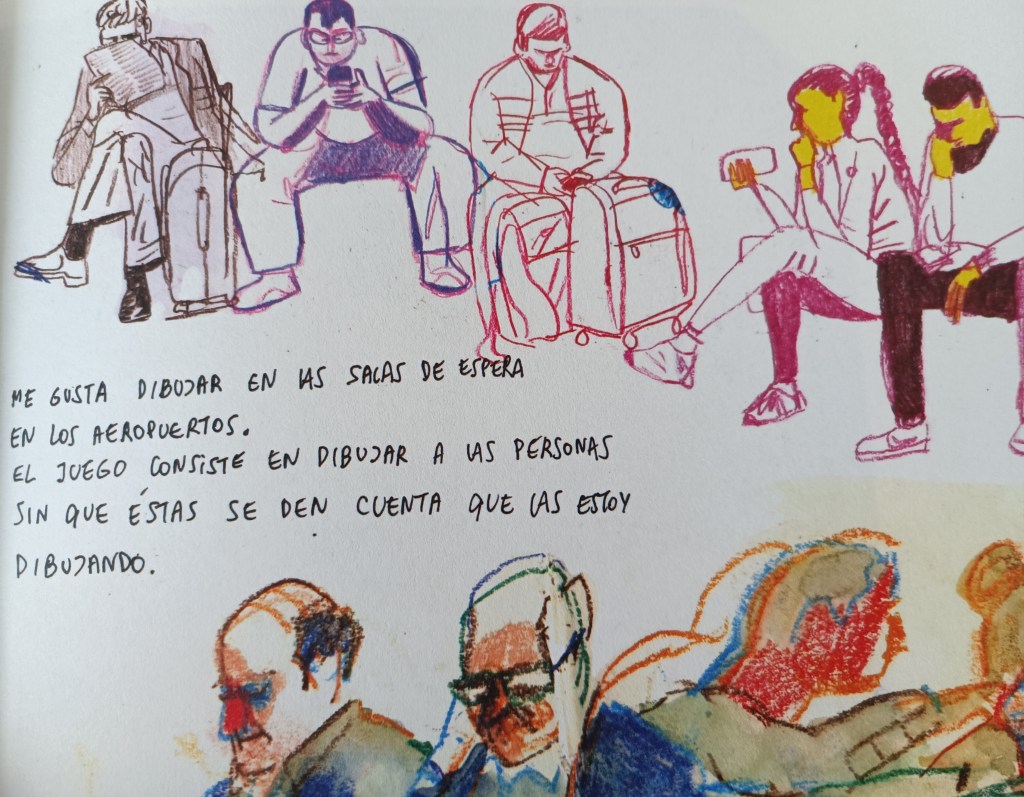 ME GUSTA DIBUJAR EN LAS SALAS DE ESPERA
EN LOS AEROPUERTOS.
EL JUEGO CONSISTE EN DIBUJAR A LAS PERSONAS
SIN QUE ÉSTAS SE DEN CUENTA QUE LAS ESTOY
DIBUJANDO.